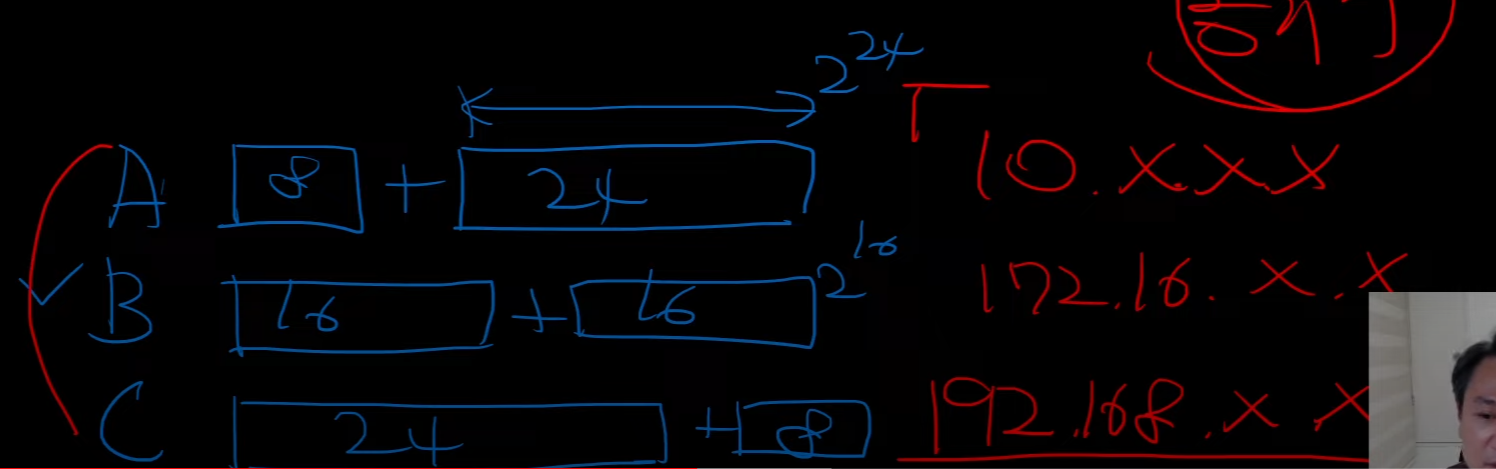 2^24
A 8 + 24 10.x.x.x
B 16 + 16 2^16 172.16.x.x
C 24 + 8 192.168.x.x